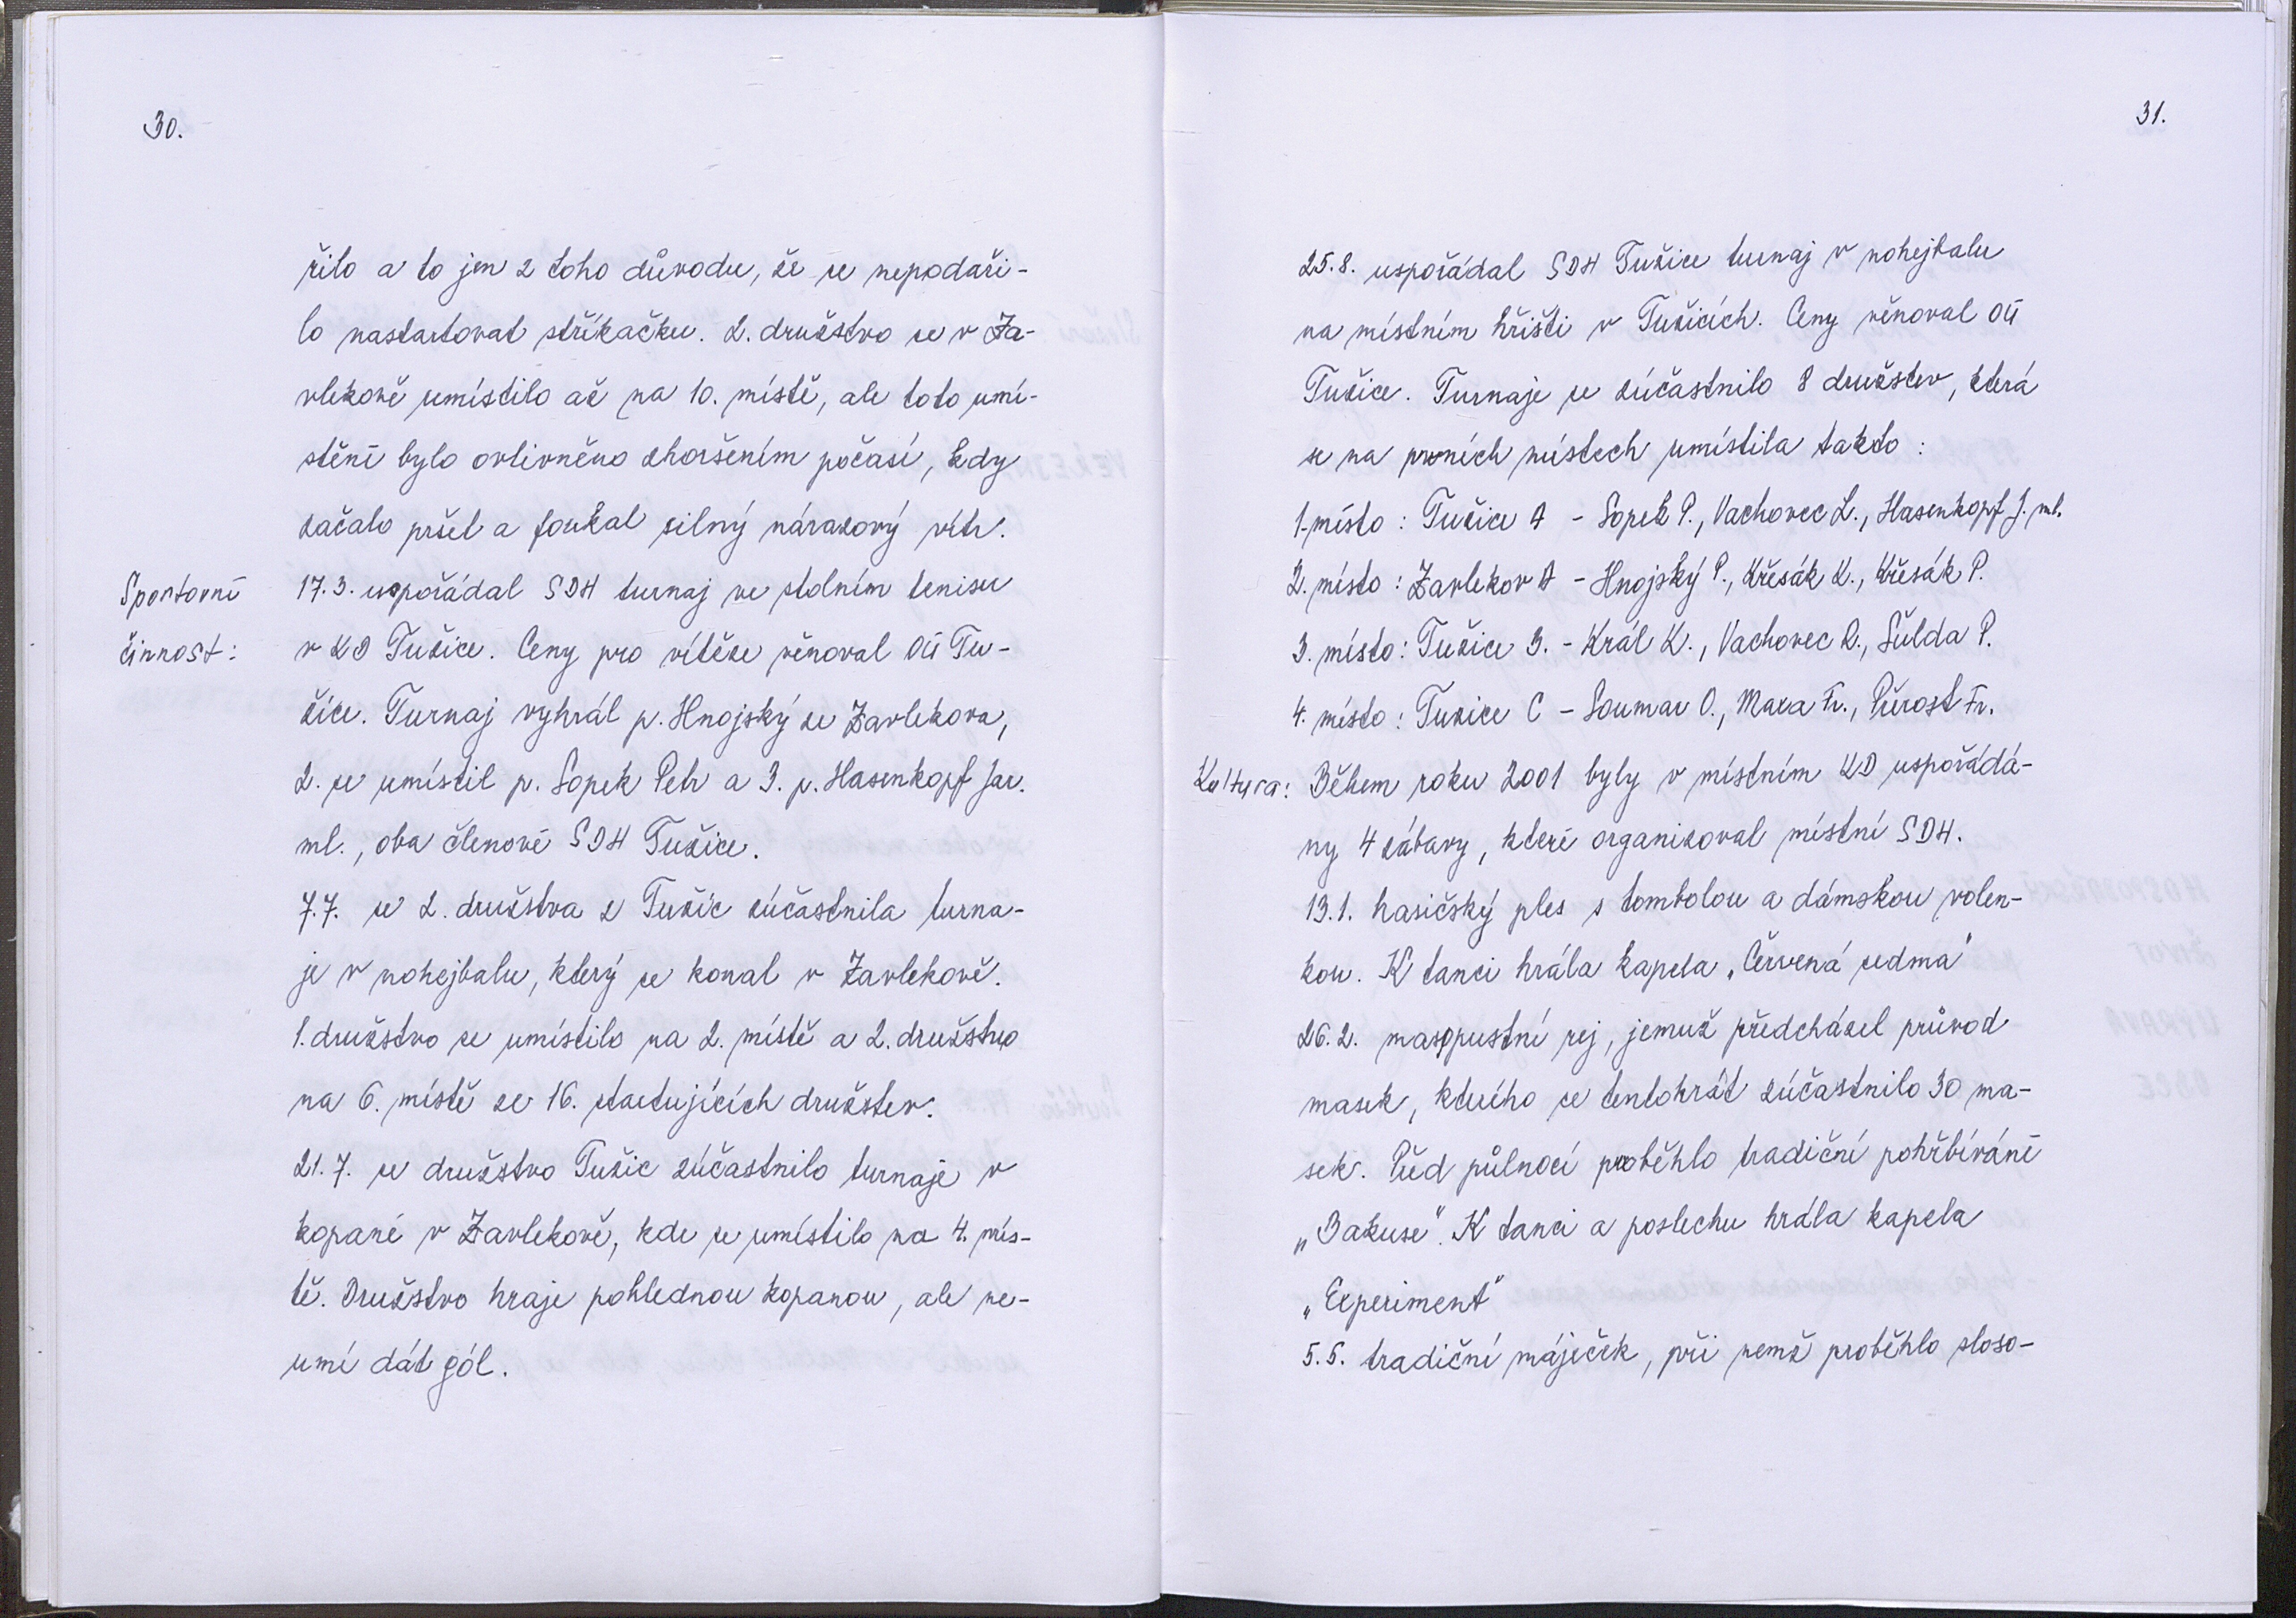 30.
řilo a to jen z toho důvodu, že se nepodaři-
lo nastartovat stříkačku. 2. družstvo se v Za-
vlekově umístilo až na 10. místě, ale toto umí-
stění bylo ovlivněno zhoršením počasí, kdy
začalo pršet a foukal silný nárazový vítr.
Sportovní
činnost:
17.3. uspořádal SDH turnaj ve stolním tenisu
v KD Tužice. Ceny pro vítěze věnoval OÚ Tu-
žice. Turnaj vyhrál p. Hnojský ze Zavlekova,
2. se umístil p. Sopek Petr a 3. p. Hasenkopf Jar.
ml., oba členové SDH Tužice.
7.7. se 2. družstva z Tužic zúčastnila turna-
je v nohejbalu, který se konal v Zavlekově.
1. družstvo se umístilo na 2. místě a 2. družstvo
na 6. místě ze 16. startujících družstev.
21.7. se družstvo Tužic zúčastnilo turnaje v
kopané v Zavlekově, kde se umístilo na 4. mís-
tě. Družstvo hraje pohlednou kopanou, ale ne-
umí dát gól.
31.
25.8. uspořádal SDH Tužice turnaj v nohejbalu
na místním hřišti v Tužicích. Ceny věnoval OÚ
Tužice. Turnaje se zúčastnilo 8 družstev, která
se na prvních místech umístila takto:
1. místo: Tužice A - Sopek P., Vachovec L., Hasenkopf J. ml.
2. místo: Zavlekov A - Hnojský P., Křesák K., Křesák P.
3. místo: Tužice B. - Král K., Vachovec R., Šulda P.
4. místo: Tužice C - Soumar O., Maxa Fr., Průrost Fr.
Kultura:
Během roku 2001 byly v místním KD uspořádá-
ny 4 zábavy, které organizoval místní SDH.
13.1. hasičský ples s tombolou a dámskou volen-
kou. K tanci hrála kapela „Červená sedma"
26.2. masopustní rej, jemuž předcházel průvod
masek, kterého se tentokrát zúčastnilo 30 ma-
šek. Před půlnocí proběhlo tradiční pohřbívání
„Bakuse". K tanci a poslechu hrála kapela
„Experiment"
5.5. tradiční máječek, při nemž proběhlo sloso-